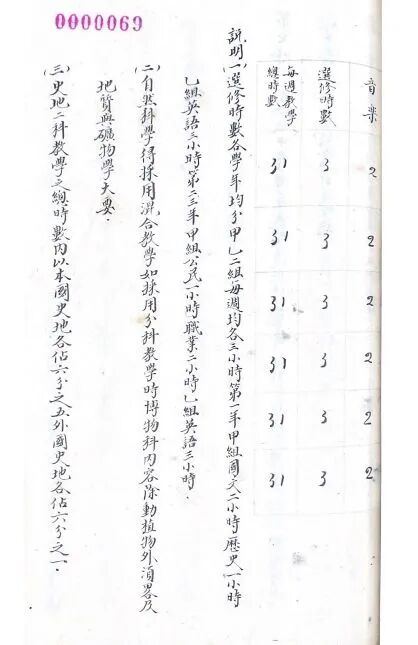 0000069
音樂 2 2 2 2 2 2
選修時數 3 3 3 3 3 3
每週教學總時數 31 31 31 31 31 31
說明(一)選修時數各學年均分甲乙二組每週均各三小時第一年甲組國文二小時歷史一小時
乙組英語三小時第二三年甲組公民一小時職業二小時乙組英語三小時．
(二)自然科學得採用混合教學如採用分科教學時博物科內容除動植物外須畧及
地質與礦物學大要．
(三)史地二科教學之總時數內以本國史地各佔六分之五外國史地各佔六分之一．